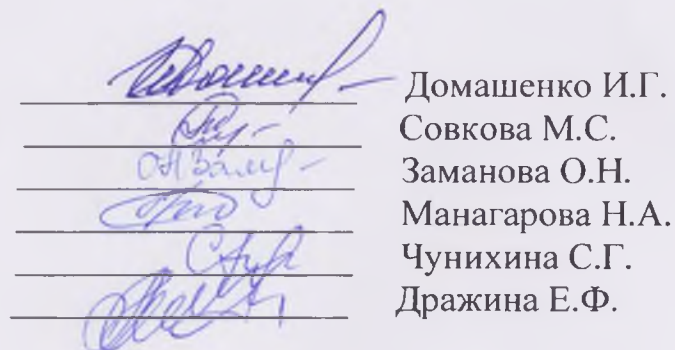 Домашенко И.Г.
Совкова М.С.
Заманова О.Н.
Манагарова Н.А.
Чунихина С.Г.
Дражина Е.Ф.